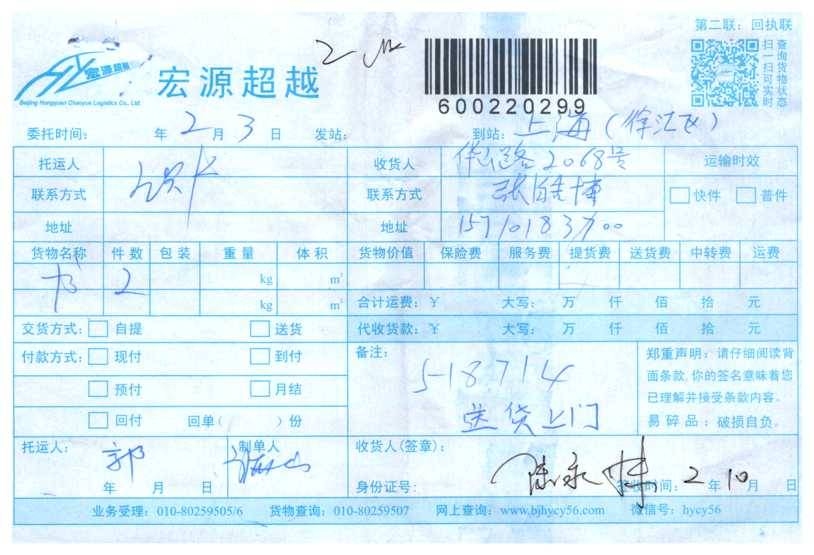 第二联：回执联
宏源超越
宏源超越
Beijing Hongyuan Chaoyue Logistics Co., Ltd.
600220299
扫一扫可实时
查询货物状态
委托时间： 年 2 月 3 日 发站： 到站：上海（徐汇飞）
托运人 收货人 华径路2068号 运输时效
联系方式 联系方式 张皓博 快件 普件
地址 地址 15710183700
货物名称 件数 包装 重量 体积 货物价值 保险费 服务费 提货费 送货费 中转费 运费
书 2 kg m³
kg m³ 合计运费：￥ 大写： 万 仟 佰 拾 元
交货方式： 自提 送货 代收货款：￥ 大写： 万 仟 佰 拾 元
付款方式： 现付 到付 备注：
预付 月结 518714
回付 回单( )份 送货上门
郑重声明：请仔细阅读背
面条款,你的签名意味着您
已理解并接受条款内容。
易碎品：破损自负。
托运人： 制单人 收货人(签章)：
郭
年 月 日 年 月 日 身份证号： 签收时间： 年 2 月 10 日
业务受理：010-80259505/6 货物查询：010-80259507 网上查询：www.bjhycy56.com 微信号：hycy56